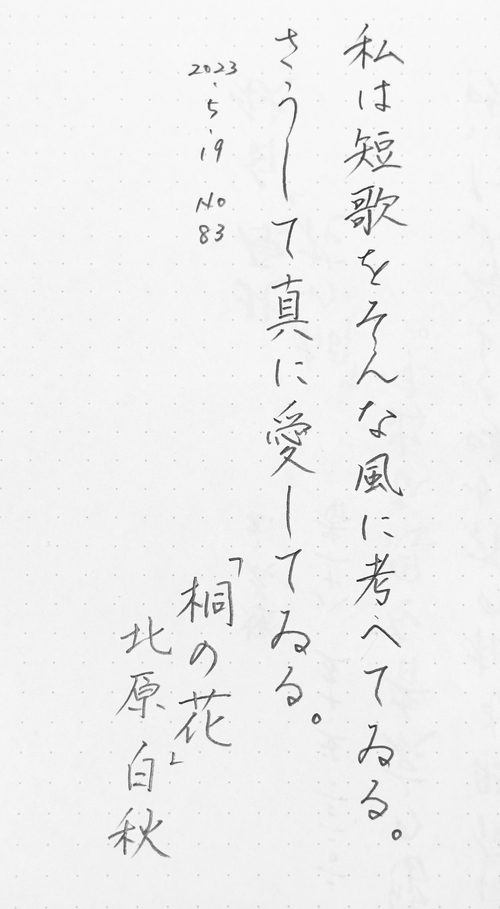 私は短歌をそんな風に考へてゐる。
さうして真に愛してゐる。
「桐の花」
北原白秋
2023.5.19 No 83